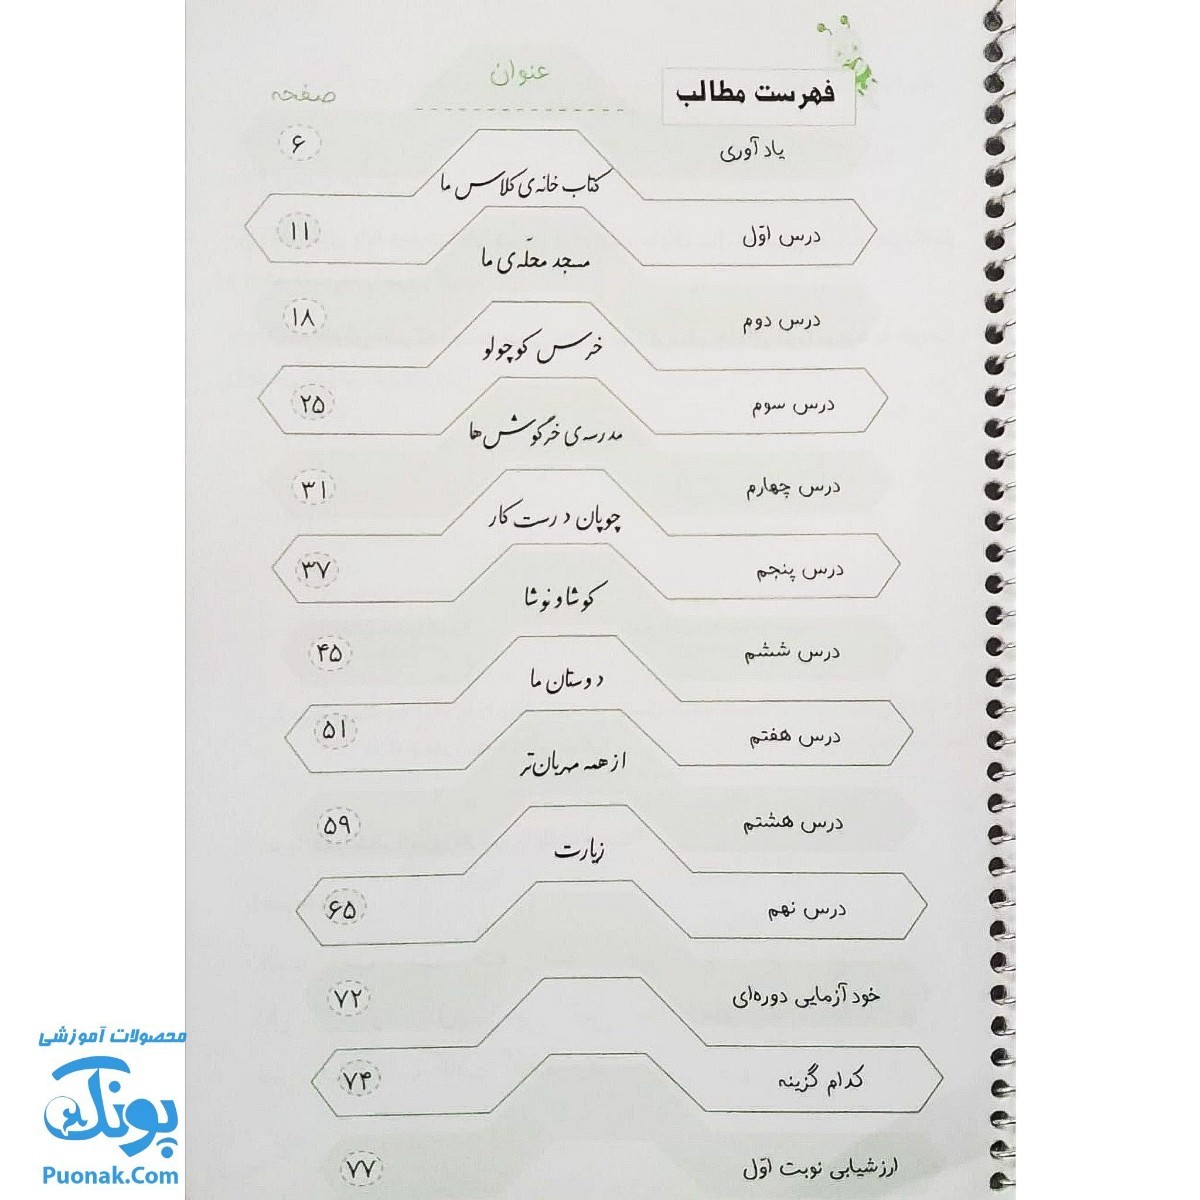 فهرست مطالب
عنوان
صفحه
یادآوری
۶
کتاب خانه‌ی کلاس ما
درس اوّل
۱۱
مسجد محلّه‌ی ما
درس دوم
۱۸
خرس کوچولو
درس سوم
۲۵
مدرسه‌ی خرگوش‌ها
درس چهارم
۳۱
چوپان درست کار
درس پنجم
۳۷
کوشا و نوشا
درس ششم
۴۵
دوستان ما
درس هفتم
۵۱
از همه مهربان‌تر
درس هشتم
۵۹
زیارت
درس نهم
۶۵
خود آزمایی دوره‌ای
۷۲
کدام گزینه
۷۴
ارزشیابی نوبت اوّل
۷۷
محصولات آموزشی
پونک
Puonak.Com